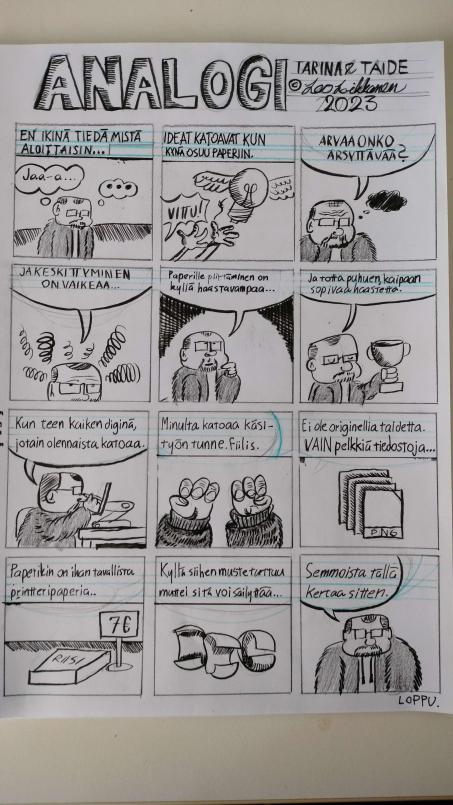 ANALOGI
TARINA & TAIDE
©
2023
EN IKINÄ TIEDÄ MISTÄ
ALOITTAISIN...
Jaa-a...
IDEAT KATOAVAT KUN
KYNÄ OSUU PAPERIIN.
VITTU!
ARVAA ONKO
ÄRSYTTÄVÄÄ?
JA KESKITTYMINEN
ON VAIKEAA...
Paperille piirtäminen on
kyllä haastavampaa...
Ja totta puhuen, kaipaan
sopivaa haastetta.
Kun teen kaiken diginä,
jotain olennaista katoaa.
Minulta katoaa käsi-
työn tunne. Fiilis.
Ei ole originellia taidetta.
VAIN pelkkiä tiedostoja...
PNG
Paperikin on ihan tavallista
printteripaperia..
7€
RIISI
Kyllä siihen muste tarttuu
muttei sitä voi säilyttää...
Semmoista tällä
kertaa sitten.
LOPPU.